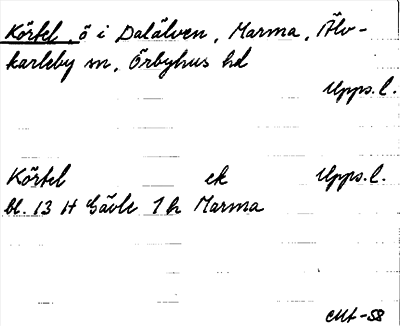 Körtel, ö i Dalälven, Marma, Älv-
karleby sn, Örbyhus hd
Upps.l.
Körtel ek Upps.l.
bl. 13 H Gävle 1 h Marma
CMt-58